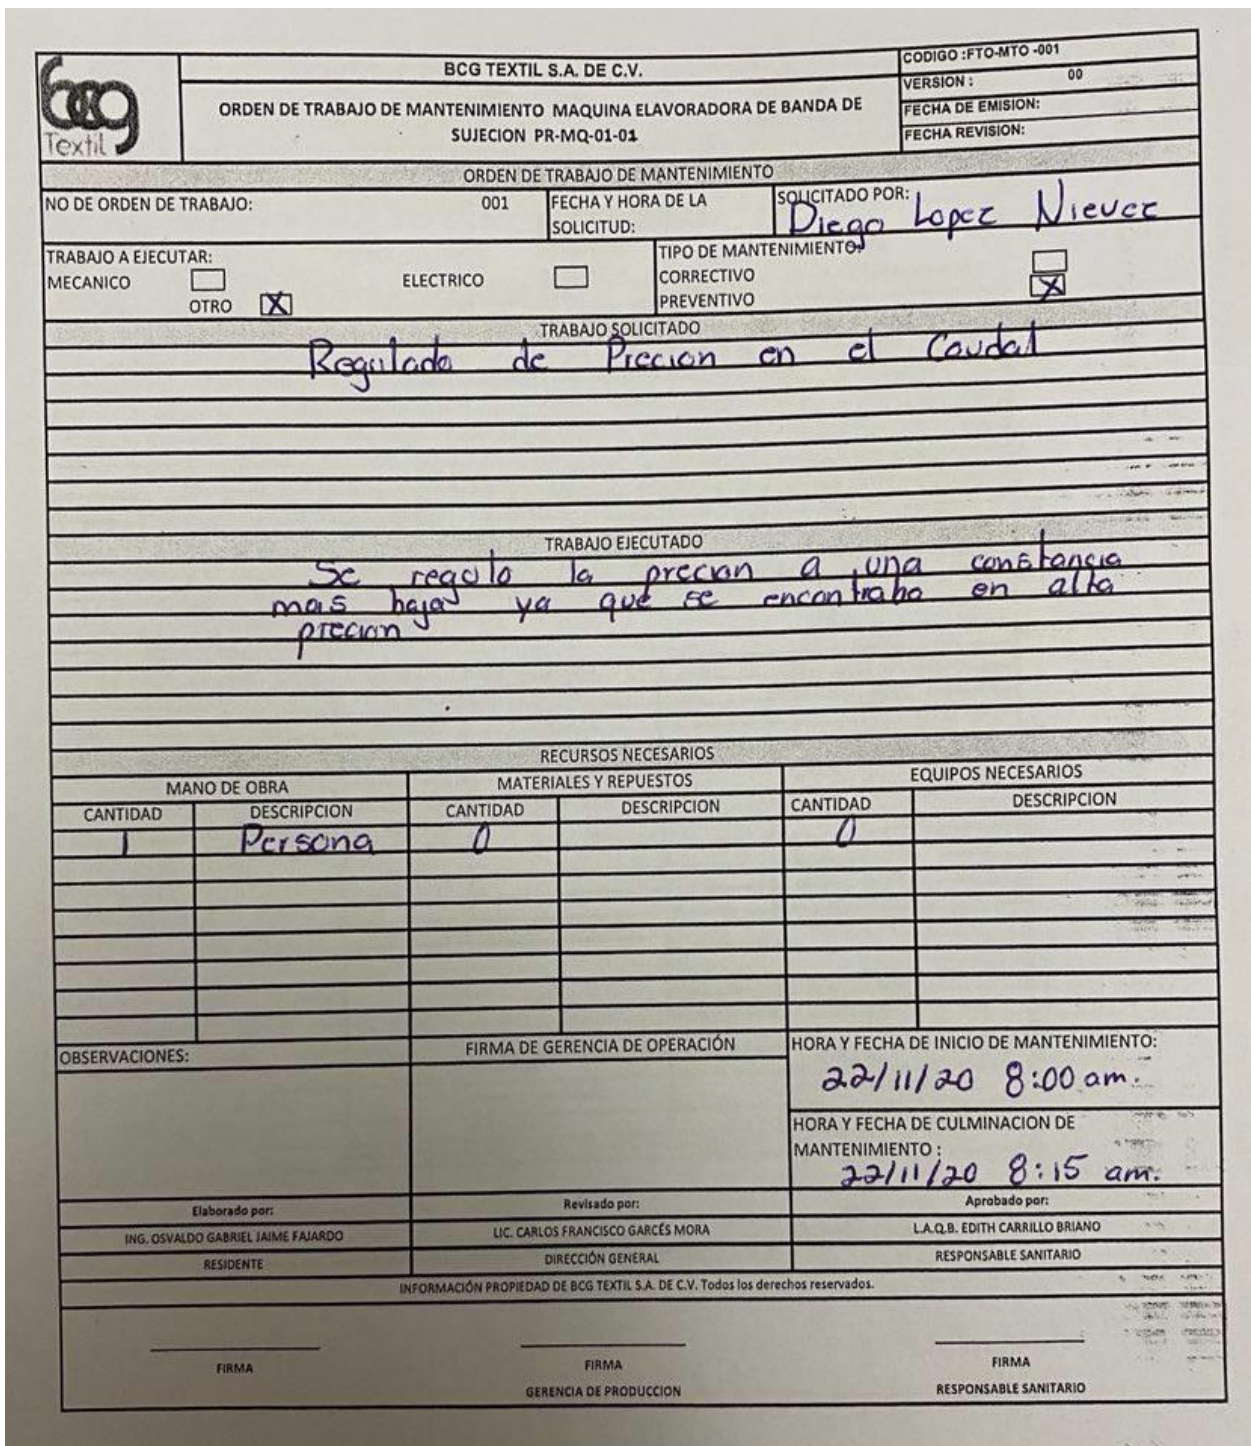 bcg
Textil
BCG TEXTIL S.A. DE C.V.
ORDEN DE TRABAJO DE MANTENIMIENTO MAQUINA ELAVORADORA DE BANDA DE
SUJECION PR-MQ-01-01
CODIGO :FTO-MTO -001
VERSION : 00
FECHA DE EMISION:
FECHA REVISION:
ORDEN DE TRABAJO DE MANTENIMIENTO
NO DE ORDEN DE TRABAJO: 001
FECHA Y HORA DE LA
SOLICITUD:
SOLICITADO POR:
Diego Lopez Nievez
TRABAJO A EJECUTAR:
MECANICO ELECTRICO
OTRO X
TIPO DE MANTENIMIENTO:
CORRECTIVO
PREVENTIVO X
TRABAJO SOLICITADO
Regulado de Precion en el Caudal
TRABAJO EJECUTADO
Se regulo la precion a una constancia
mas baja ya que se encontraba en alta
precion
RECURSOS NECESARIOS
MANO DE OBRA MATERIALES Y REPUESTOS EQUIPOS NECESARIOS
CANTIDAD DESCRIPCION CANTIDAD DESCRIPCION CANTIDAD DESCRIPCION
1 Persona 0 0
OBSERVACIONES:
FIRMA DE GERENCIA DE OPERACIÓN
HORA Y FECHA DE INICIO DE MANTENIMIENTO:
22/11/20 8:00 am.
HORA Y FECHA DE CULMINACION DE
MANTENIMIENTO :
22/11/20 8:15 am.
Elaborado por: Revisado por: Aprobado por:
ING. OSVALDO GABRIEL JAIME FAJARDO LIC. CARLOS FRANCISCO GARCÉS MORA L.A.Q.B. EDITH CARRILLO BRIANO
RESIDENTE DIRECCIÓN GENERAL RESPONSABLE SANITARIO
INFORMACIÓN PROPIEDAD DE BCG TEXTIL S.A. DE C.V. Todos los derechos reservados.
FIRMA FIRMA FIRMA
GERENCIA DE PRODUCCION RESPONSABLE SANITARIO